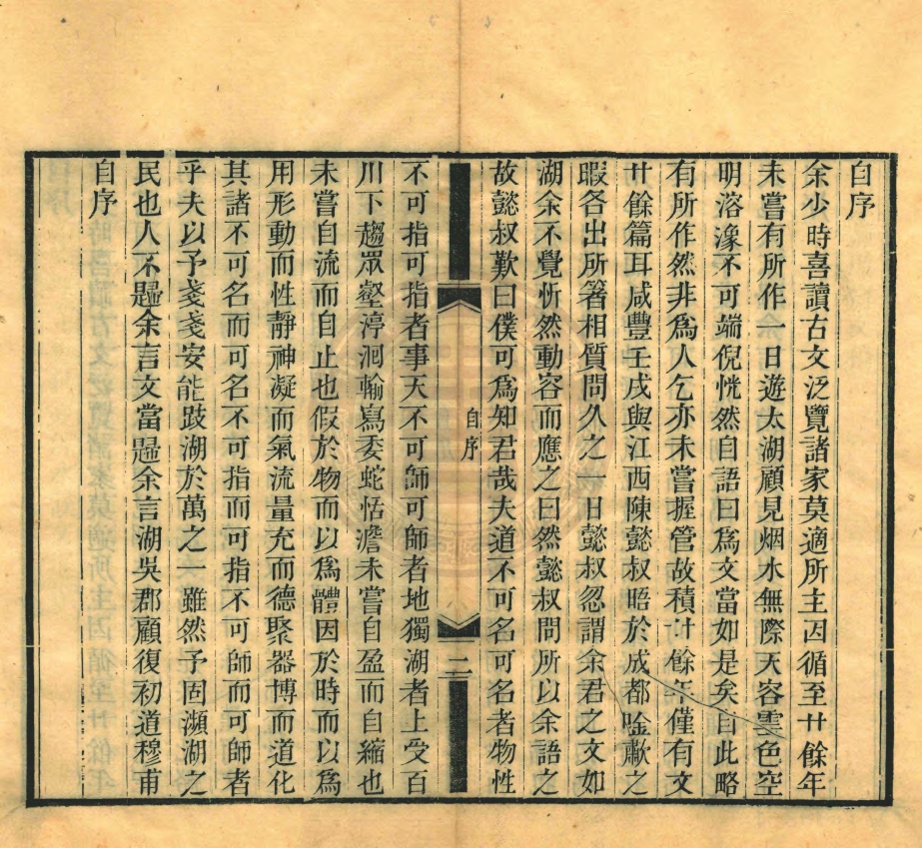 自序
余少時喜讀古文泛覽諸家莫適所主因循至廿餘年
未嘗有所作一日遊太湖顧見烟水無際天容雲色空
明溶漾不可端倪恍然自語曰爲文當如是矣自此略
有所作然非爲人乞亦未嘗握管故積廿餘年僅有文
廿餘篇耳咸豐壬戌與江西陳懿叔晤於成都唫歗之
暇各出所箸相質問久之一日懿叔忽謂余君之文如
湖余不覺忻然動容而應之曰然懿叔問所以余語之
故懿叔歎曰僕可爲知君哉夫道不可名可名者物性
自序
二
不可指可指者事天不可師可師者地獨湖者上受百
川下趨眾壑渟洄輸寫委蛇恬澹未嘗自盈而自縮也
未嘗自流而自止也假於物而以爲體因於時而以爲
用形動而性靜神凝而氣流量充而德聚器博而道化
其諸不可名而可名不可指而可指不可師而可師者
乎夫以予戔戔安能跂湖於萬之一雖然予固瀕湖之
民也人不題余言文當題余言湖吳郡顧復初道穆甫
自序